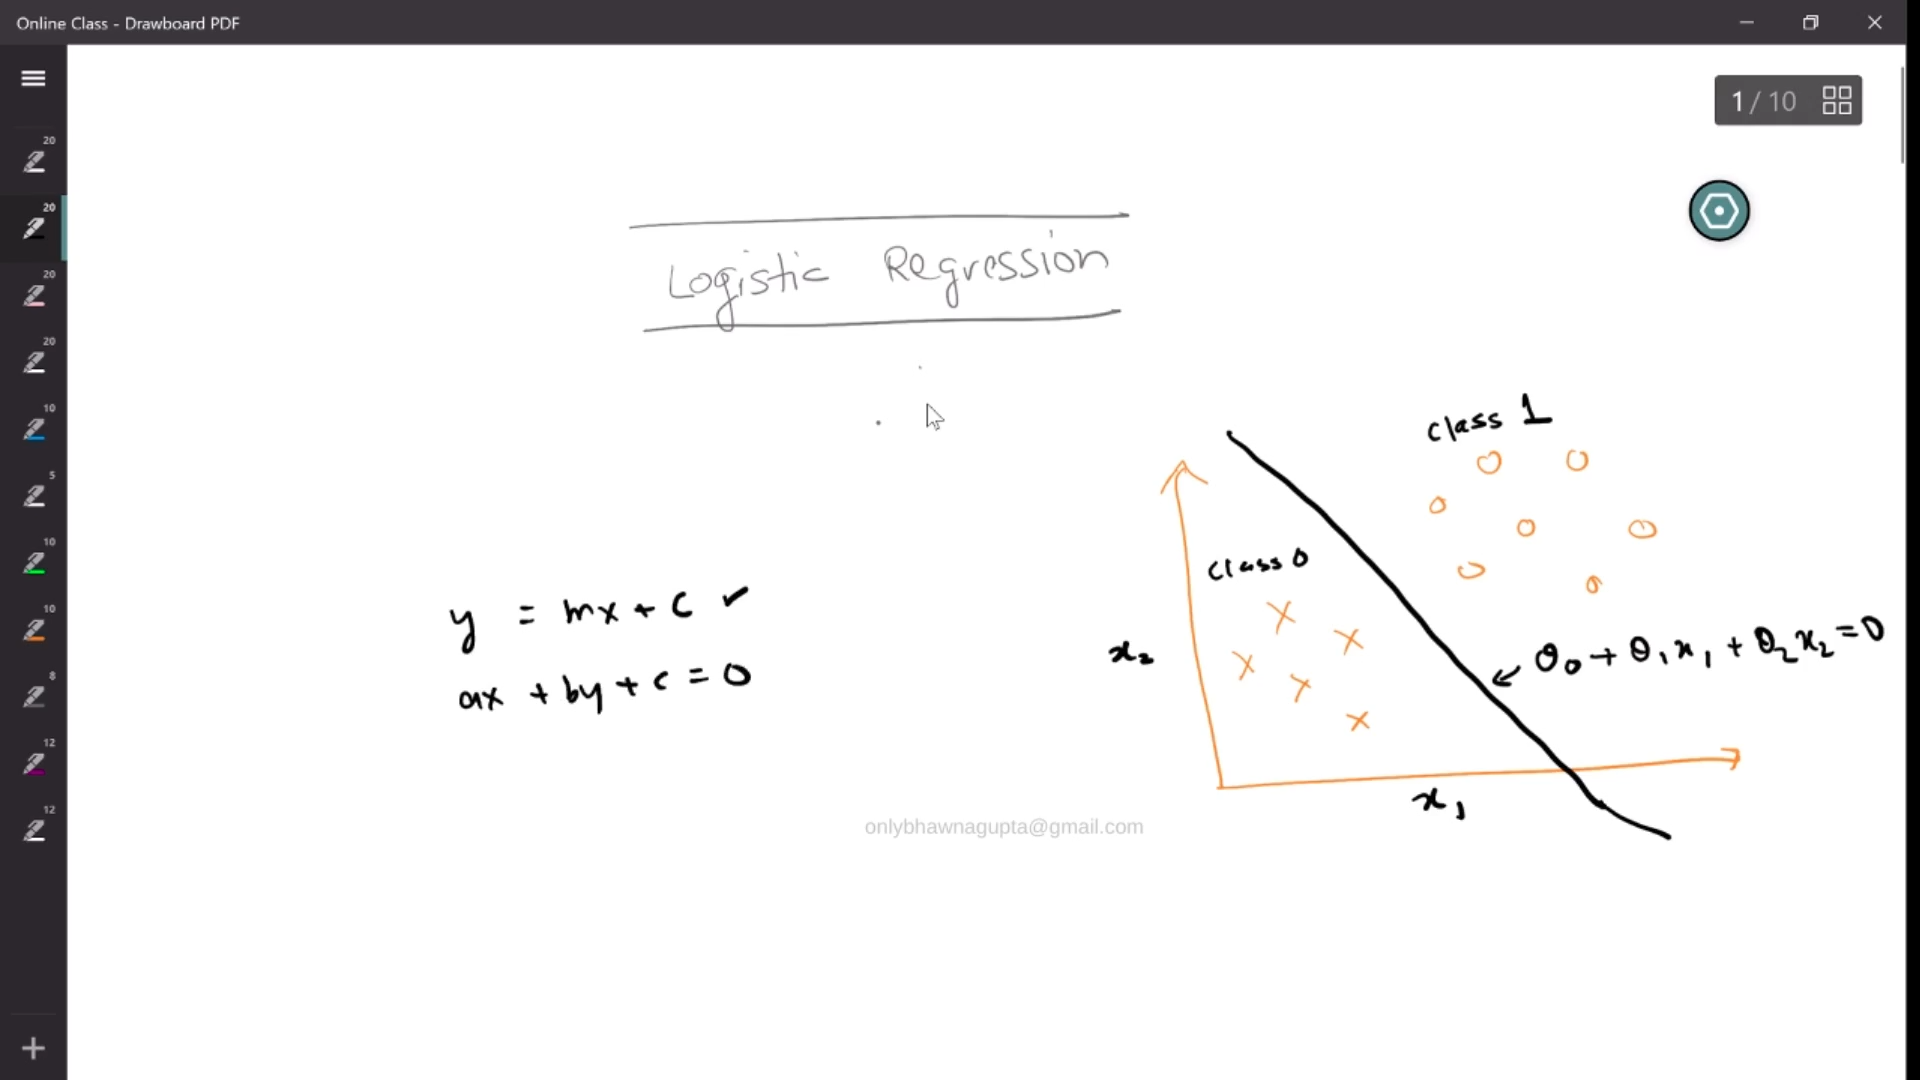 Online Class - Drawboard PDF
1 / 10
20
20
20
20
10
5
10
10
8
12
12
Logistic Regression
class 1
class 0
y = mx + c ✓
ax + by + c = 0
x₂
θ₀ + θ₁x₁ + θ₂x₂ = 0
x₁
onlybhawnagupta@gmail.com